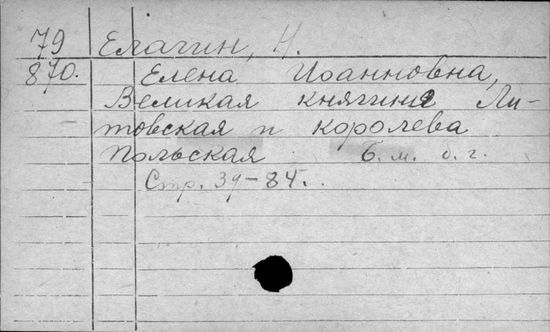 79 Елагин, Н.
870. Елена Иоанновна,
Великая княгиня Ли-
товская и королева
польская б.м. б.г.
Стр. 39-84.